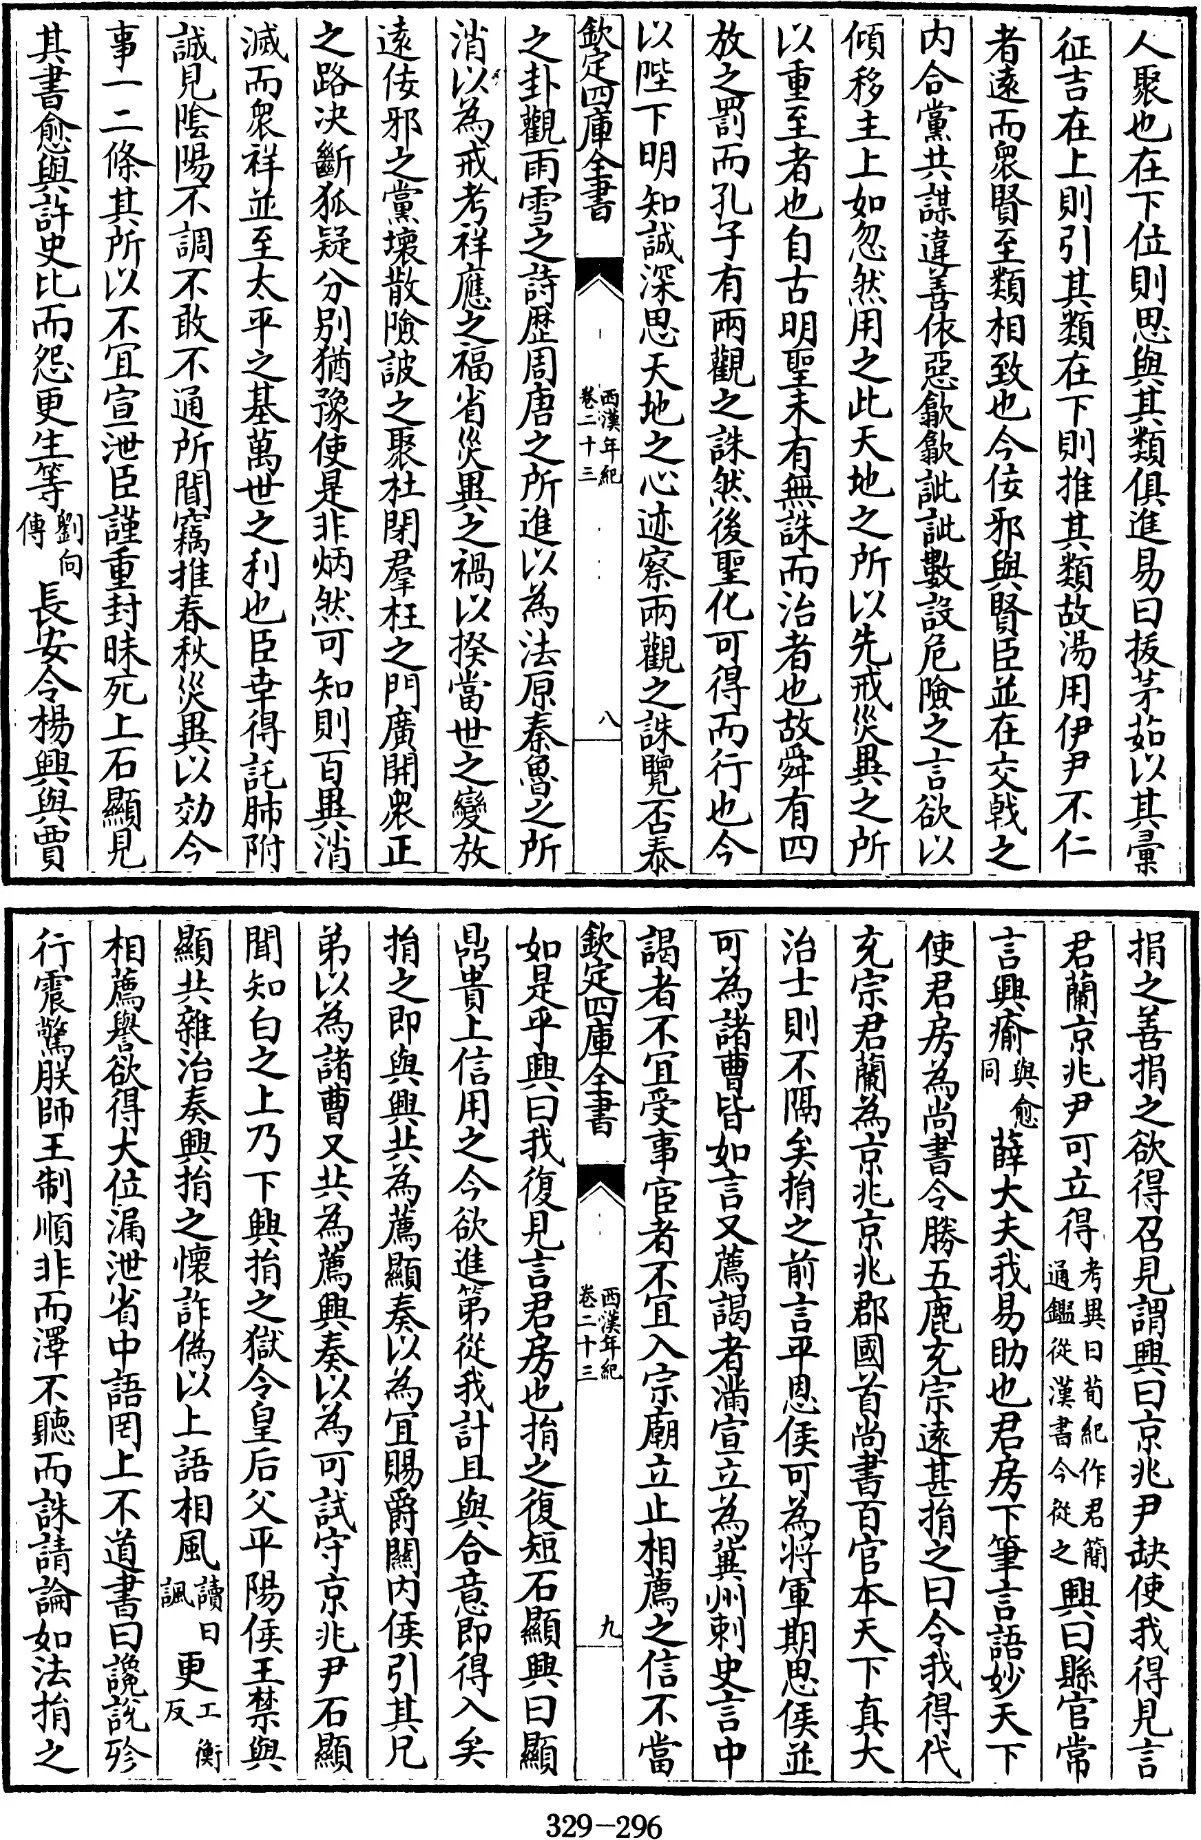 人聚也在下位則思與其類俱進易曰拔茅茹以其彙
征吉在上則引其類在下則推其類故湯用伊尹不仁
者遠而衆賢至類相致也今佞邪與賢臣並在交戟之
内合黨共謀違善依惡歙歙訿訿數設危險之言欲以
傾移主上如忽然用之此天地之所以先戒災異之所
以重至者也自古明聖未有無誅而治者也故舜有四
放之罰而孔子有兩觀之誅然後聖化可得而行也今
以陛下明知誠深思天地之心迹察兩觀之誅覽否泰
欽定四庫全書 西漢年紀 卷二十三 八
之卦觀雨雪之詩歷周唐之所進以為法原秦魯之所
消以為戒考祥應之福省災異之禍以揆當世之變放
遠佞邪之黨壞散險詖之聚杜閉羣枉之門廣開衆正
之路決斷狐疑分别猶豫使是非炳然可知則百異消
滅而衆祥並至太平之基萬世之利也臣幸得託肺附
誠見陰陽不調不敢不通所聞竊推春秋災異以効今
事一二條其所以不宜宣泄臣謹重封昧死上石顯見
其書愈與許史比而怨更生等劉向傳長安令楊興與賈
捐之善捐之欲得召見謂興曰京兆尹缺使我得見言
君蘭京兆尹可立得考異曰荀紀作君簡通鑑從漢書今從之興曰縣官常
言興瘉與愈同薛大夫我易助也君房下筆言語妙天下
使君房為尚書令勝五鹿充宗遠甚捐之曰令我得代
充宗君蘭為京兆京兆郡國首尚書百官本天下真大
治士則不隔矣捐之前言平恩侯可為將軍期思侯並
可為諸曹皆如言又薦謁者滿宣立為冀州刺史言中
謁者不宜受事宦者不宜入宗廟立止相薦之信不當
欽定四庫全書 西漢年紀 卷二十三 九
如是乎興曰我復見言君房也捐之復短石顯興曰顯
鼎貴上信用之今欲進第從我計且與合意即得入矣
捐之即與興共為薦顯奏以為宜賜爵關内侯引其兄
弟以為諸曹又共為薦興奏以為可試守京兆尹石顯
聞知白之上乃下興捐之獄令皇后父平陽侯王禁與
顯共雜治奏興捐之懷詐偽以上語相風讀曰諷更工衡反
相薦譽欲得大位漏泄省中語罔上不道書曰讒說殄
行震驚朕師王制順非而澤不聽而誅請論如法捐之
329－296